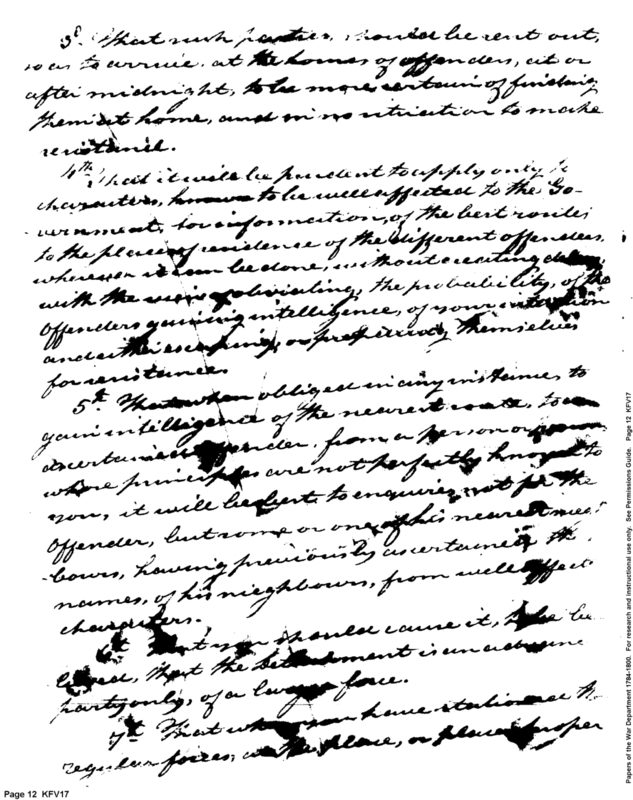 3d. That such parties, should be sent out,
so as to arrive, at the homes of offenders, at or
after midnight, to be more certain of finding
them at home, and in no situation to make
resistance.
4th. That it will be prudent to apply only to
characters, known to be well affected to the Go-
vernment, for information, of the best routes
to the place of residence of the different offenders,
wherever it can be done, without creating delay,
with the view of obviating, the probability, of the
Offenders gaining intelligence, of your intention
and either escaping, or preparing themselves
for resistance
5th. That when obliged in any instance, to
gain intelligence of the nearest route, to an
ascertained offender, from a person or
whose principles are not perfectly known to
you, it will be best to enquire, not for the
Offender, but some or one of his nearest neigh
bours, having previously ascertained the
names, of his nieghbours, from well affect
characters.
6t. That you should cause it, to be be
lieved, that the detachment is an advance
party only, of a larger force.
7t. That when you have stationed th
regular forces, at the place, or places proper
Page 12 KFV17
Papers of the War Department 1784-1800. For research and instructional use only. See Permissions Guide. Page 12 KFV17